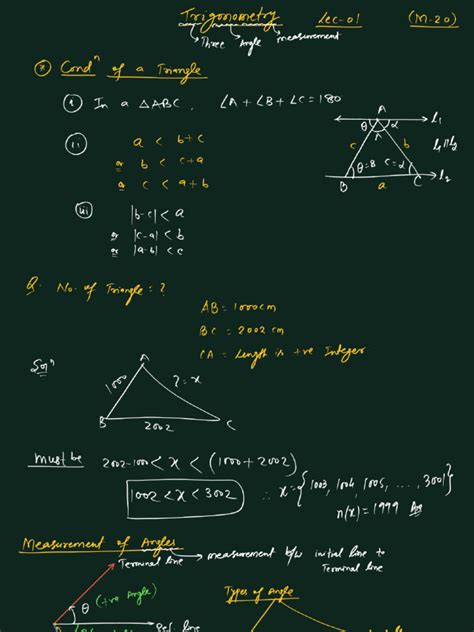 Trigonometry Lec-01 (M-20)
Three Angle measurement
(*) Condⁿ of a Triangle
(i) In a △ABC, ∠A + ∠B + ∠C = 180
(ii) a < b+c
or b < c+a
or c < a+b
(iii) |b-c| < a
or |c-a| < b
or |a-b| < c
A
θ A α
l₁
c b
l₁ || l₂
θ=B C=α
B a C
l₂
Q. No. of Triangle = ?
AB = 1000cm
BC = 2002 cm
CA = Length is +ve Integer
Solⁿ
A
1000 ? = x
B 2002 C
must be 2002-1000 < x < (1000+2002)
1002 < x < 3002 ∴ x = {1003, 1004, 1005, ..., 3001}
n(x) = 1999 Ans
Measurement of Angles
Terminal line → measurement b/w initial line to
Terminal line
Types of Angle
θ (+ve Angle)